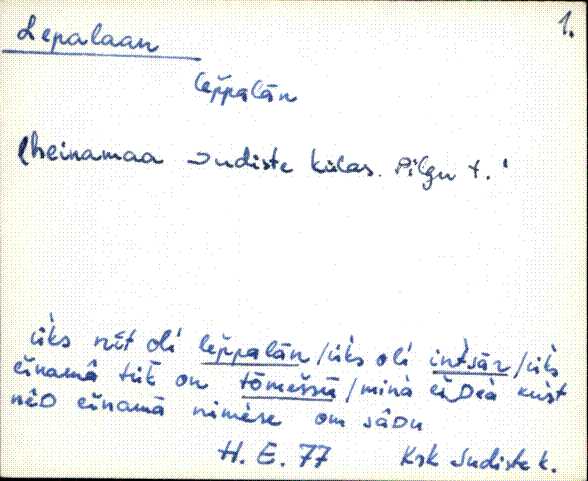 1.
Lepalaan
lep̆palān
(heinamaa Sudiste külas. Pilgu t.
üks nüt́ oĺi lep̆palān /üks oĺi intsār /üks
einamā tük on tōmessū /minà ei Deà kust
nēD einamā nimèse om sāDu
H. E. 77 Krk Sudiste k.